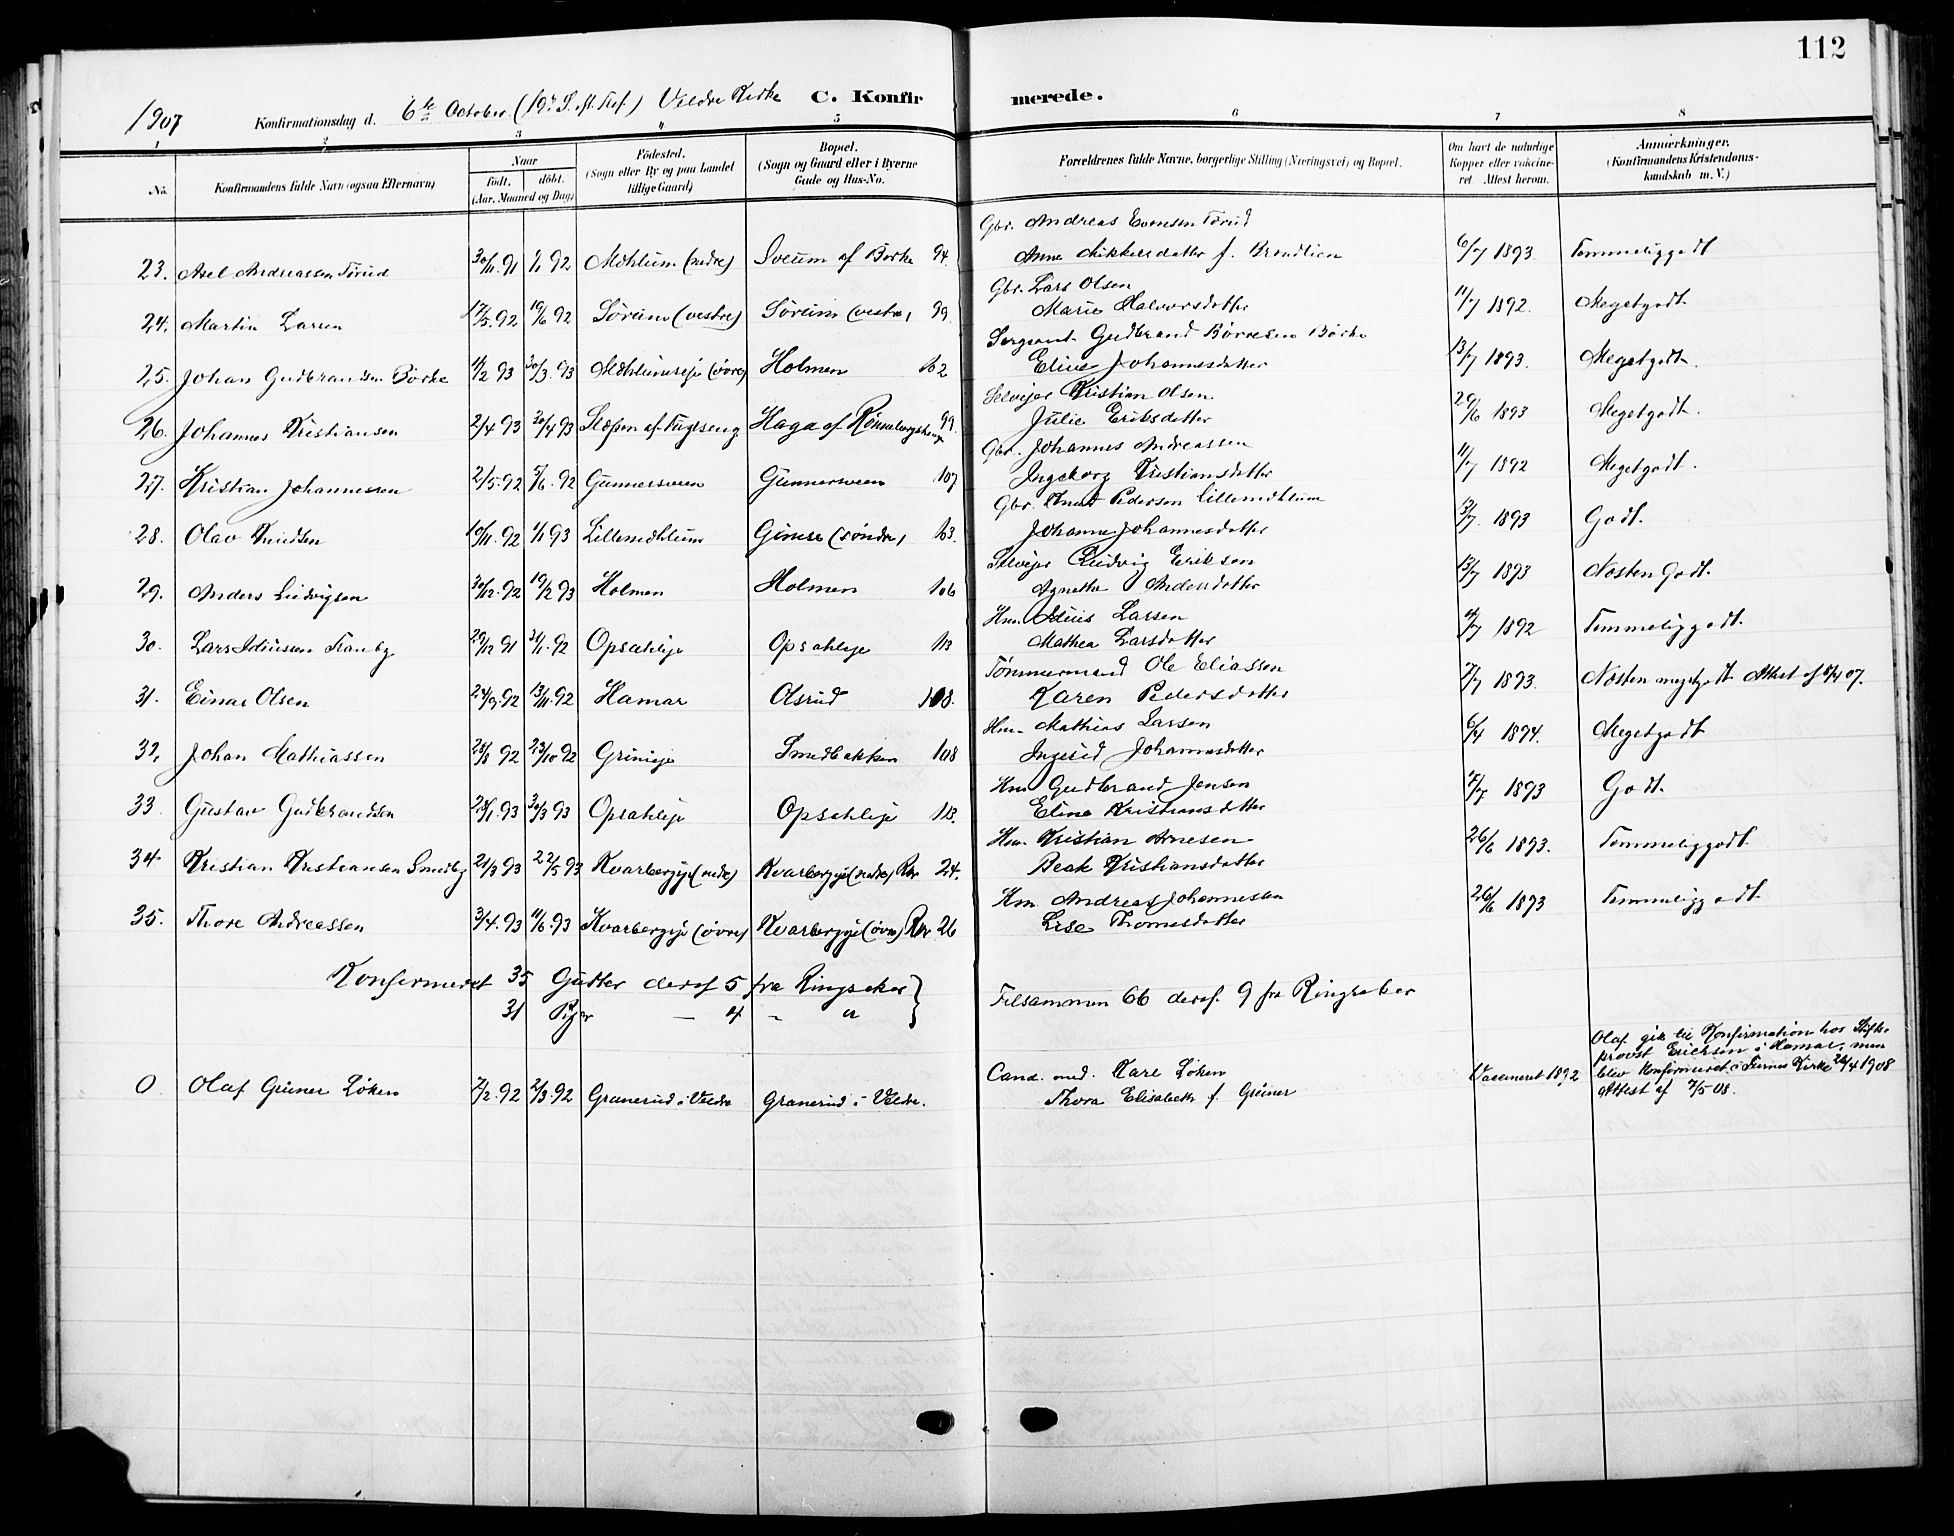 112
1907 Konfirmationsdag d. 6te October (19. S. eft. Tref.) Veldre Kirke C. Konfir merede.
1 2 3 4 5 6 7 8
No.
Konfirmandens fulde Navn (ogsaa Efternavn)
Naar
födt. döbt.
(Aar, Maaned og Dag)
Födested.
(Sogn eller By og paa Landet
tillige Gaard)
Bopæl.
(Sogn og Gaard eller i Byerne
Gade og Hus-No.
Forældrenes fulde Navne, borgerlige Stilling (Næringsvei) og Bopæl.
Om havt de naturlige
Kopper eller vaccine-
ret Attest herom.
Anmærkninger.
(Konfirmandens Kristendoms-
kundskab m. V.)
Gbr. Andreas Evensen Törud
23. Axel Andreassen Törud 30/11.91 1/1 92 Mæhlum (nedre) Sveum af Borke 94. Anne Mikkelsdatter f. Brendlien 6/7 1893 Temmeliggodt
Gbr. Lars Olsen
24. Martin Larsen 17/5.92 19/6 92 Sörum (vestre) Sörum (vestre) 99. Marie Halvorsdatter 11/7 1892. Megetgodt
Sergeant Gudbrand Börresen Börke
25. Johan Gudbrandsen Börke 11/2 93 30/3.93 Mæhlumseje (övre) Holmen 102 Eline Johannesdatter 13/7 1893. Megetgodt.
Selvejer Kristian Olsen.
26. Johannes Kristiansen 2/4 93 30/4 93 Stæpen af Fuglseng Haga af 99. Julie Eriksdatter 29/6 1893 Megetgodt.
Gbr. Johannes Andreassen
27. Kristian Johannessen 2/5.92 5/6.92 Gunnersveen Gunnersveen 107 Ingeborg Kristiansdatter 11/7 1892 Megetgodt.
Gbr. Knud Pedersen Lillemæhlum
28. Olav Knudsen 10/11.92 1/1 93 Lillemæhlum Gimse (söndre) 103. Johanne Johannesdatter 3/7. 1893 Godt.
Selvejer Ludvig Eriksen
29. Anders Ludvigsen 30/12.92 19/2 93 Holmen Holmen 106 Agnethe Andersdatter 13/7 1893 Næsten Godt.
Hm. Iduis Larsen
30. Lars Iduissen Tranby 29/12 91 31/1.92 Opsahleje Opsahleje 113 Mathea Larsdatter 11/7 1892 Temmeliggodt.
Tömmermand Ole Eliassen
31. Einar Olsen 24/9.92 13/11.92 Hamar Olsrud 108. Karen Pedersdatter 7/7 1893. Næsten megetgodt Attest af 4/4 07.
Hm. Mathias Larsen
32. Johan Mathiassen 28/8 92 23/10 92 Grimeje Smedbakken 108 Ingerid Johannesdatter 6/4 1894. Megetgodt
Hm Gudbrand Jensen
33. Gustav Gudbrandsen 28/1.93 30/3 93 Opsahleje Opsahleje 113. Eline Kristiansdatter 7/7 1893 Godt.
Hm. Kristian Arnesen
34. Kristian Kristiansen Smedby 21/3 93 22/5 93 Kvarbergeje (nedre) Kvarbergeje (nedre) Rkr 24. Beate Kristiansdatter 26/6 1893. Temmeliggodt
Hm Andreas Johannesen
35. Thore Andreassen 3/4.93 11/6.93 Kvarbergeje (övre) Kvarbergeje (övre) Rkr 26 Lise Thomasdatter 26/6 1893 Temmeliggodt
Konfirmeret 35 Gutter deraf 5 fra Ringsaker }
31 Piger — 4 - " } Tilsammen 66 deraf 9 fra Ringsaker
0 Olaf Greiner Löken 7/2.92 21/3.92 Granerud i Veldre Granerud i Veldre. Cand. med. Karl Löken
Thora Elisabeth f. Greiner
Vaccineret 1892
Olaf gik til Konfirmation hos Stifts-
provst Ericksen i Hamar, men
blev konfirmeret i Furnes Kirke 26/4 1908
Attest af 7/5 08.